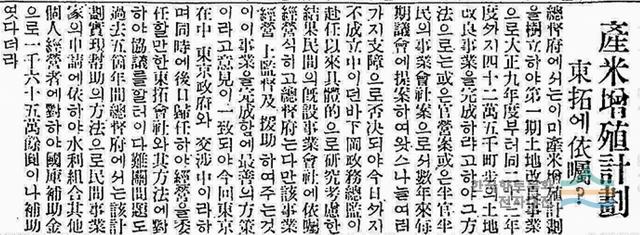 產米增殖計劃
東拓에依囑?
總督府에서는이미產米增殖計劃
을樹立하야第一期土地改良事業
으로大正九年度부터同二十三年
度外지四十二萬五千町步의土地
改良事業을完成하랴고하야그方
法으로는或은官營案或은半官半
民의事業會社案으로서數年來每
期議會에提案하여왓스나늘여러
가지支障으로否決되야今日外지
不成立中이던바下岡政務總監이
赴任以來具體的으로硏究考慮한
結果民間의旣設事業會社에依囑
經營식히고總督府는다만該事業
經營上監督及援助하여주는것
이이事業을完成함에最善의方策
이라고意見이一致되야今回東京
在中東京政府와交涉中이라하
며同時에後日歸任하야經營을委
任할만한東拓會社와其方法에對
하야協議를할터이다難關問題도
過去五個年間總督府에서는該計
劃實現幇助의方法으로民間事業
家의申請에依하야水利組合其他
個人經營者에對하야國庫補助金
으로一千六十五萬餘圓이나補助
엿다더라